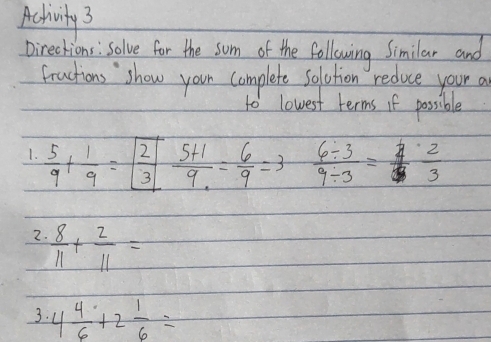 Activity 3
Directions: Solve for the sum of the following Similar and
fractions "show your Complete Solution reduce your a
to lowest terms if possible
1. 5/9 + 1/9 = 2/3 5+1/9 = 6/9 = 3 6÷3/9÷3 = 2/3
2. 8/11 + 2/11 =
3. 4 4/6 + 2 1/6 =